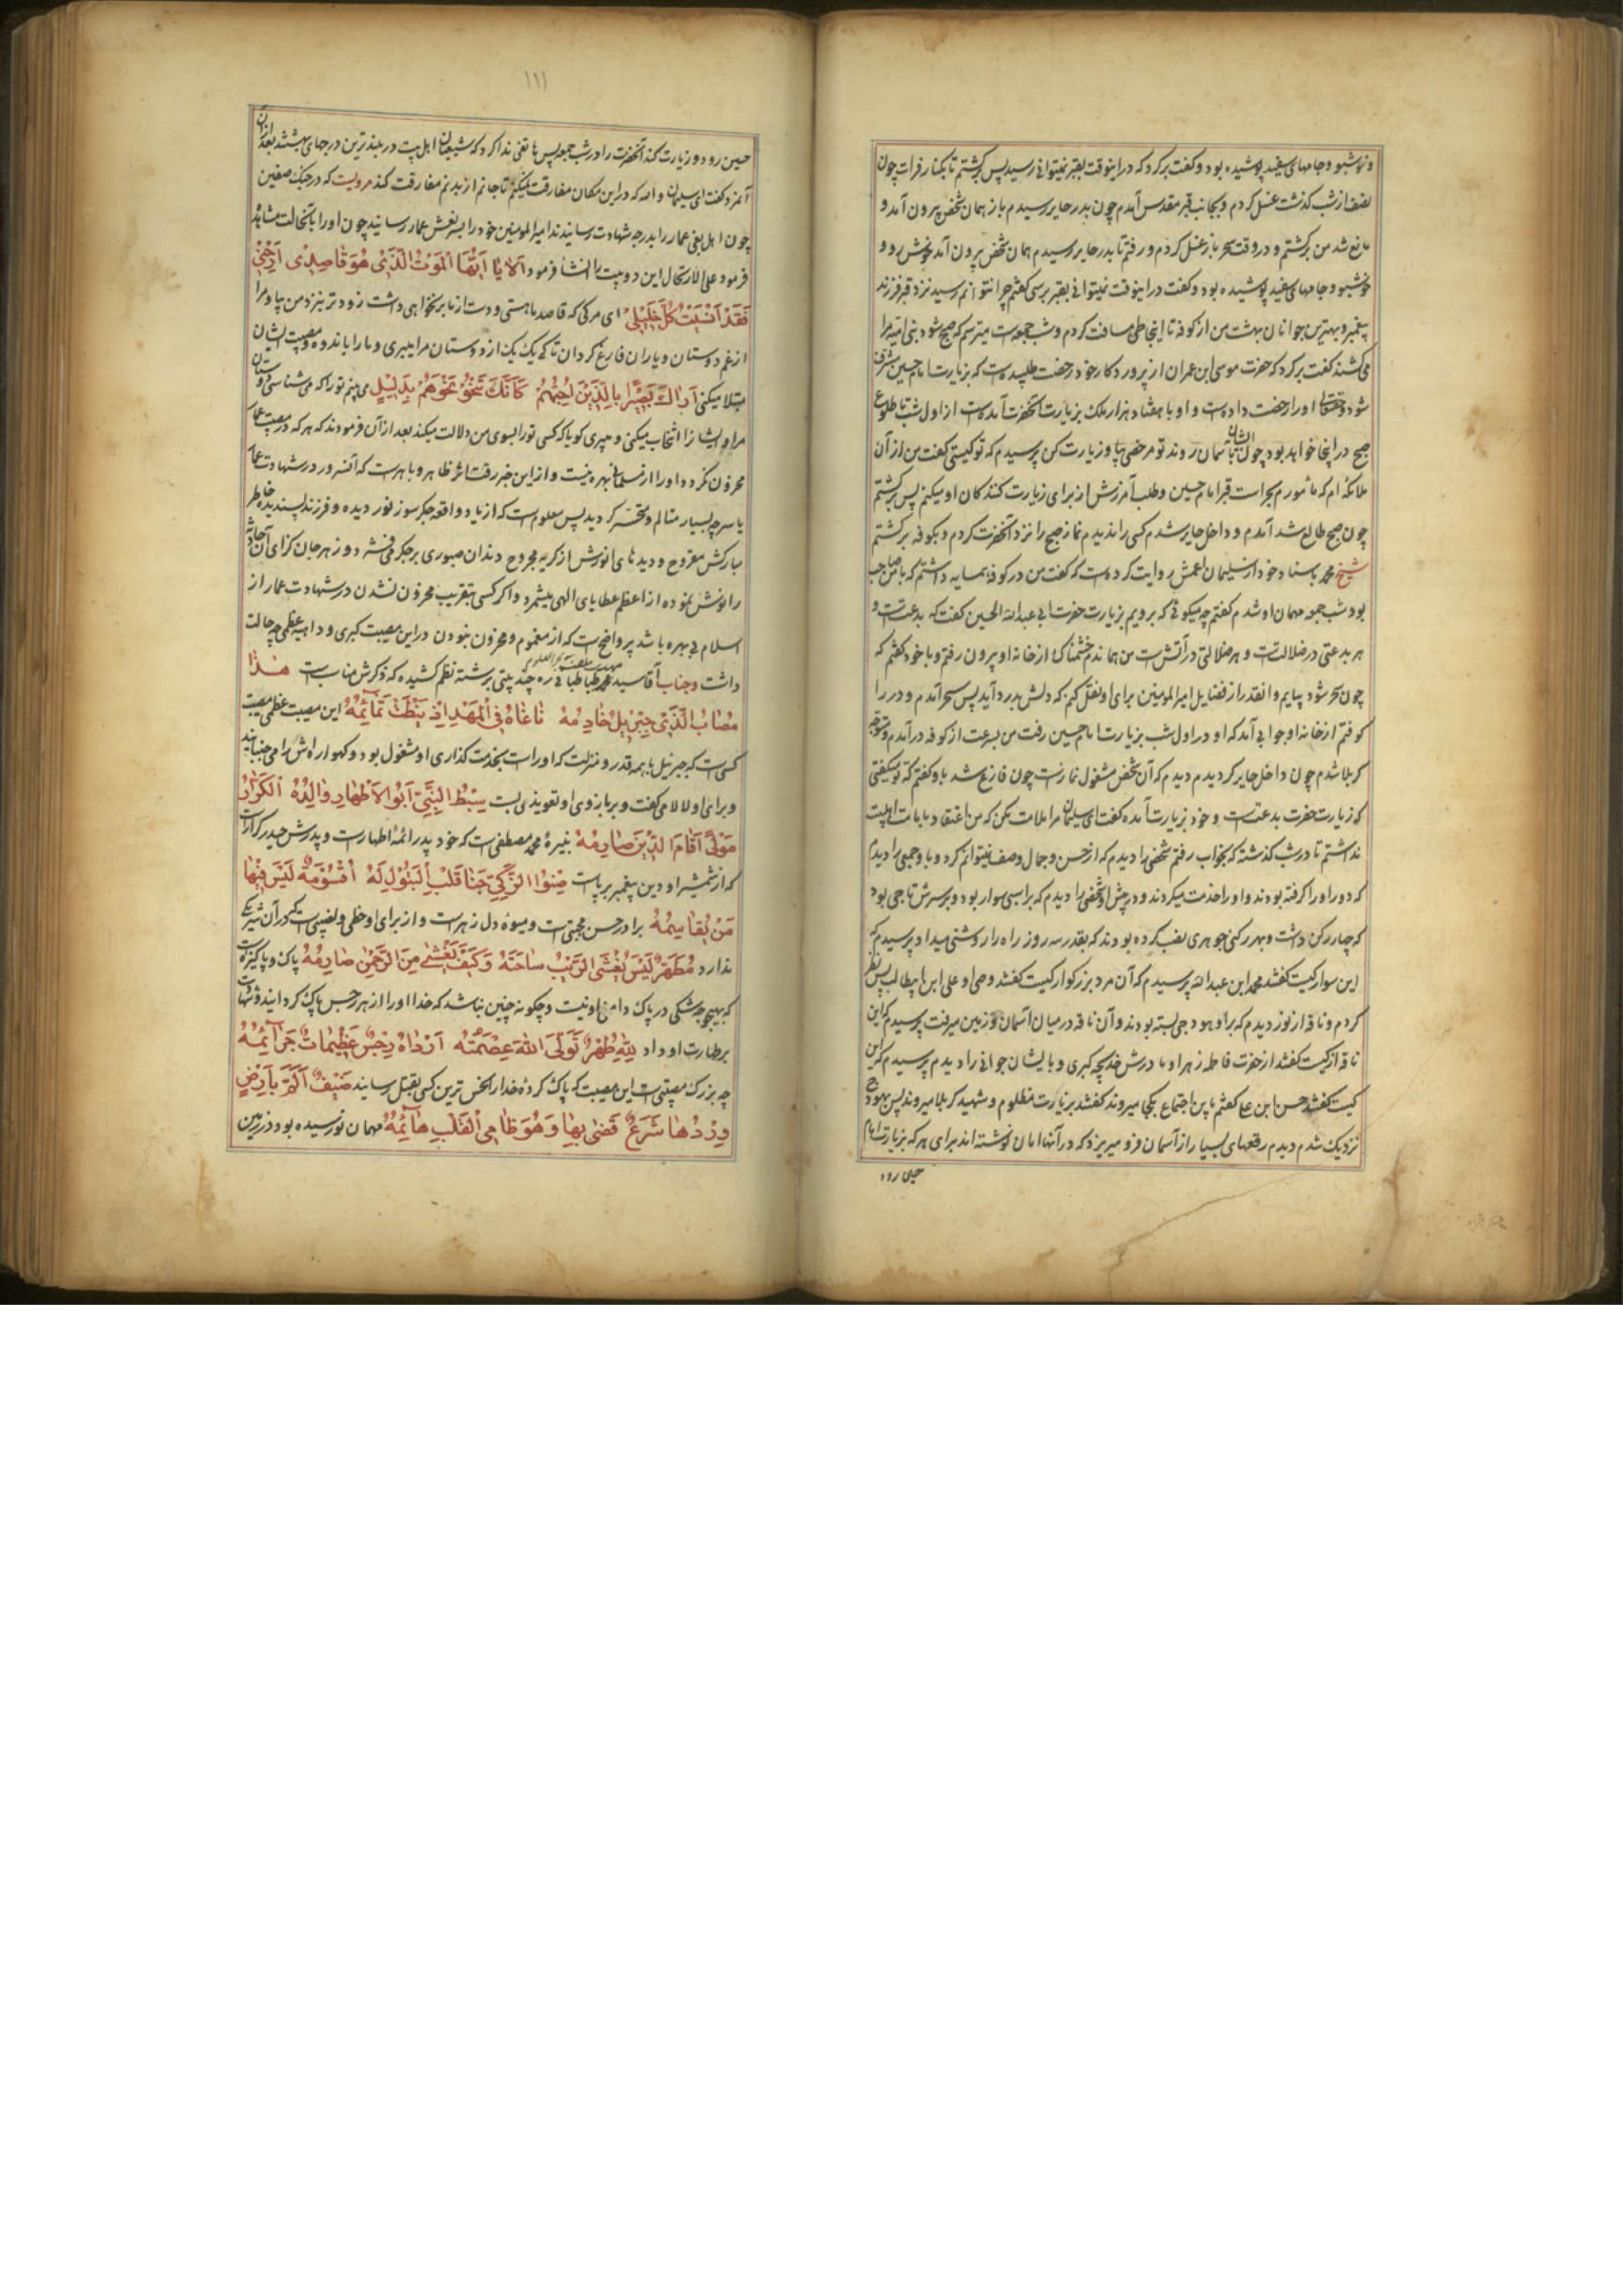 و خوشبو و جامهای سفید پوشیده بود و گفت برگرد که در اینوقت بقبر نمیتوانی رسید پس برگشتم تا بکنار فرات چون
نصف از شب گذشت غسل کردم و بجانب قبر مقدس آمدم چون بدر حایر رسیدم باز همان شخص بیرون آمد و
مانع شد من برگشتم و در وقت سحر باز غسل کردم و رفتم تا بدر حایر رسیدم همان شخص بیرون آمد خوش رو و
خوشبو و جامهای سفید پوشیده بود و گفت در اینوقت نمیتوانی بقبر برسی گفتم چرا نتوانم رسید نزد قبر فرزند
پیغمبر و بهترین جوانان بهشت من از کوفه تا اینجا طی مسافت کردم و شب جمعه است میترسم که صبح شود بنی امیه مرا
می کشند گفت برگرد که حضرت موسی ابن عمران از پروردگار خود رخصت طلبیده است که بزیارت امام حسین مشرف
شود و حقتعالی او را رخصت داده است و او با هفتاد هزار ملک بزیارت آنحضرت آمده است از اول شب تا طلوع
صبح در اینجا خواهد بود چون ایشان بآسمان روند تو مرخصی بیا و زیارت کن پرسیدم که تو کیستی گفت من از آن
ملائکه ام که مأمورم بحراست قبر امام حسین و طلب آمرزش از برای زیارت کنندکان او میکنم پس برگشتم
چون صبح طالع شد آمدم و داخل حایر شدم کسی را ندیدم نماز صبح را نزد آنحضرت کردم و بکوفه برگشتم
شیخ محمد باسناد خود از سلیمان اعمش روایت کرده است که گفت من در کوفه همسایه داشتم که با من صاحب
بود شب جمعه مهمان او شدم گفتم چه میگوئی که برویم بزیارت حضرت ابی عبدالله الحسین گفت که بدعتست و
هر بدعتی در ضلالتست و هر ضلالتی در آتش است من هماندم خشمناک از خانه او بیرون رفتم و با خود گفتم که
چون سحر شود بیایم و انقدر از فضایل امیرالمومنین برای او نقل کنم که دلش بدرد آید پس سحر آمدم و در را
کوفتم از خانه او جوابی آمد که او در اول شب بزیارت امام حسین رفت من بسرعت از کوفه در آمدم و متوجه
کربلا شدم چون داخل حایر گردیدم دیدم که آن شخص مشغول نماز است چون فارغ شد باو گفتم که تو میگفتی
که زیارت حضرت بدعتست و خود بزیارت آمده گفت ای سلیمان مرا ملامت مکن که من اعتقاد بامامت اهلبیت
نداشتم تا در شب گذشته که بخواب رفتم شخصی را دیدم که از حسن و جمال وصف نمیتوانم کرد و با او جمعی را دیدم
که دور او را گرفته بودند و او را خدمت میکردند و در پیش او شخصی را دیدم که بر اسبی سوار بود و بر سرش تاجی بود
که چهار رکن داشت و بهر رکنی جوهری نصب کرده بودند که بقدر سه روز راه را روشنی میداد پرسیدم که
این سوار کیست گفتند محمد ابن عبدالله پرسیدم که آن مرد بزرکوار کیست گفتند وصی او علی ابن ابیطالب پس نظر
کردم و ناقه از نور دیدم که بر او هودجی بسته بودند و آن ناقه در میان آسمان و زمین میرفت پرسیدم که این
ناقه از کیست گفتند از حضرت فاطمه زهرا و مادرش خدیجه کبری و با ایشان جوانی را دیدم پرسیدم که این
کیست گفتند حسن ابن علی گفتم باین اجتماع بکجا میروند گفتند بزیارت مظلوم و شهید کربلا میروند پس بهودج
نزدیک شدم دیدم رقعهای بسیار از آسمان فرو میریزد که در آنها امان نوشته اند برای هر که بزیارت امام
حسین رود
۱۱۱
حسین رود و زیارت کند آنحضرت را در شب جمعه پس هاتفی ندا کرد که شیعیان اهل بیت در بلندترین درجهای بهشتند بعد از آن
آنمرد گفت ای سلیمان والله که در این مکان مفارقت نمیکنم تا جانم از بدنم مفارقت کند مرویست که در جنک صفین
چون اهل بغی عمار را بدرجه شهادت رسانیدند امیرالمومنین خود را بسر نعش عمار رسانید چون او را بانحالت مشاهده
فرمود علی الارتحال این دو بیت را انشا فرمود اَلا یا اَیُّهَا الْمَوْتُ الَّذی هُوَ قاصِدی اَرِحْنی
فَقَدْ اَفْنَیْتَ کُلَّ خَلیلی ای مرکی که قاصد ما هستی و دست از ما بر نخواهی داشت زودتر بنزد من بیا و مرا
از غم دوستان و یاران فارغ کردان تا کی یک یک از دوستان مرا میبری و ما را باندوه و مصیبت ایشان
مبتلا میکنی اَراکَ بَصیراً بِالَّذینَ اُحِبُّهُمْ کَاَنَّکَ تَنْحُو نَحْوَهُمْ بِدَلیلٍ می بینم تو را که می شناسی دوستان
مرا و ایشانرا انتخاب میکنی و میبری کویا که کسی تو را بسوی من دلالت میکند بعد از آن فرمودند که هر که در مصیبت عمار
محزون نکردد او را از مسلمانی بهره نیست و از این خبر رقت اثر ظاهر و باهر است که آنسرور در شهادت عمار
یاسر چه بسیار متالم و متحسر کردید پس معلوم است که از یاد واقعه جگرسوز نور دیده و فرزند پسندیده خاطر
مبارکش مقروح و دیدهای انورش از کریه مجروح دندان صبوری بر جکر می فشرد و زهر جان کزای آنحادثه
را نوش نموده از اعظم عطایای الهی میشمرد و اکر کسی بتقریب محزون نشدن در شهادت عمار از
اسلام بی بهره باشد پر واضح است که از مغموم و محزون نبودن در این مصیبت کبری و داهیه عظمی چه حالت
داشت و جناب آقا سید مهدی طباطبائی ره چند بیتی برشته نظم کشیده که ذکرش مناسب است هذا
مُصابُ الَّذی جِبْریلُ خادِمُهُ ناغاهُ فِی الْمَهْدِ اِذْ نیطَتْ تَمائِمُهُ این مصیبت عظمی مصیبت
کسی است که جبرئیل با همه قدر و منزلت که او راست بخدمت کذاری او مشغول بود و کهواره اش را می جنبانید
و برای او لالا میکفت و بر بازوی او تعویذ می بست سِبْطُ النَّبِیِّ اَبُو الْاَطْهارِ والِدُهُ الْکَرّارُ
مَوْلیً اَقامَ الدّینَ صارِمُهُ نبیره محمد مصطفی است که خود پدر ائمه اطهار است و پدرش حیدر کرار است
که از شمشیر او دین پیغمبر برپاست صِنْوُ الزَّکِیِّ جَنا قَلْبِ الْبَتُولِ لَهُ اُقْسُومَةٌ لَیْسَ فیها
مَنْ یُقاسِمُهُ برادر حسن مجتبی است و میوه دل زهراست و از برای او حظی و نصیبی است که در آن شریکی
ندارد مُطَهَّرٌ لَیْسَ یَغْشَی الرَّیْبُ ساحَتَهُ وَ کَیْفَ یَغْشی مِنَ الرَّحْمنِ عاصِمُهُ پاک و پاکیزه است
که بهیچوجه شکی در پاک دامنی او نیست و چکونه چنین نباشد که خدا او را از هر رجس پاک کردانید و شهادت
بر طهارت او داد لِلّهِ طُهْرٌ تَوَلَّی اللهُ عِصْمَتَهُ اَرْداهُ رِجْسٌ عَظیماتٌ جَرائِمُهُ
چه بزرک مصیبتی است این مصیبت که پاک کرده خدا را نجس ترین کسی بقتل رسانید ضَیْفٌ اَلَمَّ بِاَرْضٍ
وِرْدُها شَرَعٌ قَضی بِها وَ هُوَ ظامِی الْقَلْبِ هائِمُهُ مهمان نورسیده بود در زمین